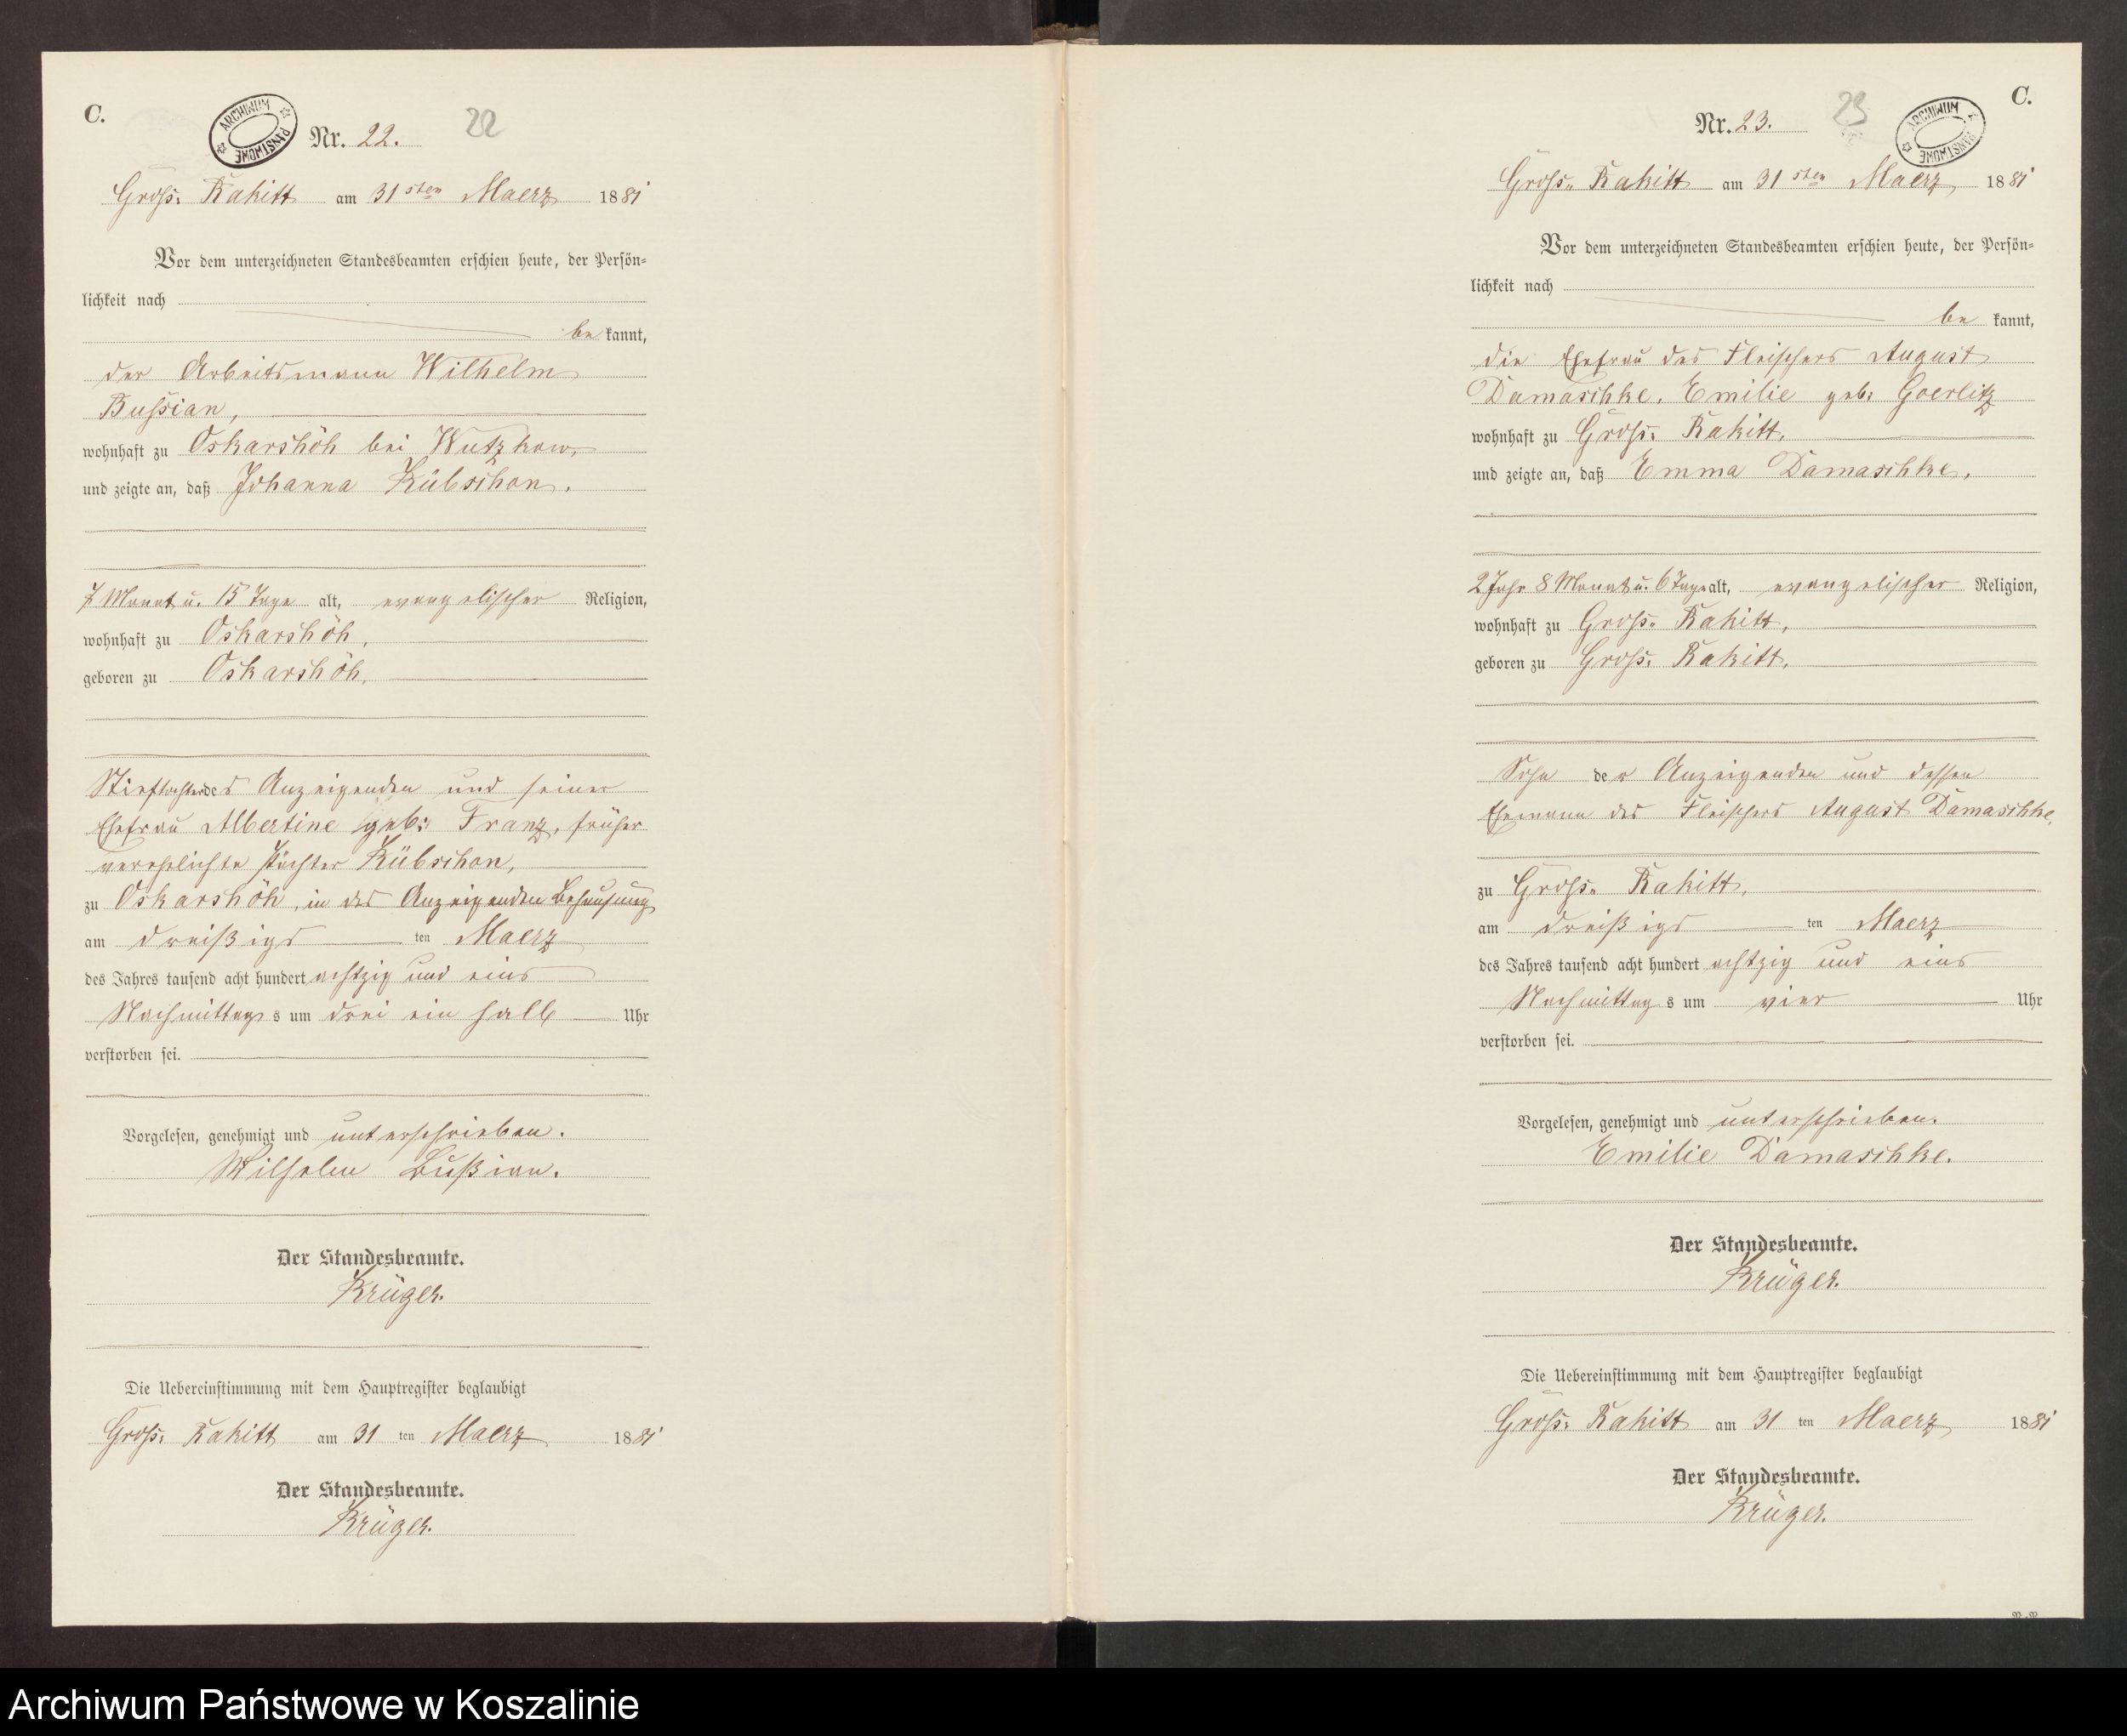 C.
ARCHIWUM PAŃSTWOWE
Nr. 22.
22
Gross. Rakitt am 31sten Maerz 1881
Vor dem unterzeichneten Standesbeamten erschien heute, der Persön-
lichkeit nach
be kannt,
der Arbeitsmann Wilhelm
Bussian,
wohnhaft zu Oskarshöh bei Wutzkow,
und zeigte an, daß Johanna Kübschon.
7 Monat u. 15 Tage alt, evangelischer Religion,
wohnhaft zu Oskarshöh,
geboren zu Oskarshöh,
Stieftochter des Anzeigenden und seiner
Ehefrau Albertine geb: Franz, früher
verehelichte Kübschon,
zu Oskarshöh, in des Anzeigenden Behausung
am dreißigs ten Maerz
des Jahres tausend acht hundert achtzig und eins
Nachmittags s um drei ein halb Uhr
verstorben sei.
Vorgelesen, genehmigt und unterschrieben.
Wilhelm Bußian.
Der Standesbeamte.
Krüger.
Die Uebereinstimmung mit dem Hauptregister beglaubigt
Gross. Rakitt am 31 ten Maerz 1881
Der Standesbeamte.
Krüger.
C.
ARCHIWUM PAŃSTWOWE
Nr. 23.
23
Gross. Rakitt am 31sten Maerz 1881
Vor dem unterzeichneten Standesbeamten erschien heute, der Persön-
lichkeit nach
be kannt,
die Ehefrau des Fleischers August
Damaschke, Emilie geb: Goerlitz
wohnhaft zu Gross. Rakitt,
und zeigte an, daß Emma Damaschke,
2 Jahr 8 Monat u. 6 Tage alt, evangelischer Religion,
wohnhaft zu Gross. Rakitt,
geboren zu Gross. Rakitt,
Sohn der Anzeigenden und dessen
Ehemann des Fleischers August Damaschke,
zu Gross. Rakitt,
am dreißigs ten Maerz
des Jahres tausend acht hundert achtzig und eins
Nachmittag s um vier Uhr
verstorben sei.
Vorgelesen, genehmigt und unterschrieben.
Emilie Damaschke.
Der Standesbeamte.
Krüger.
Die Uebereinstimmung mit dem Hauptregister beglaubigt
Gross. Rakitt am 31 ten Maerz 1881
Der Standesbeamte.
Krüger.
Archiwum Państwowe w Koszalinie